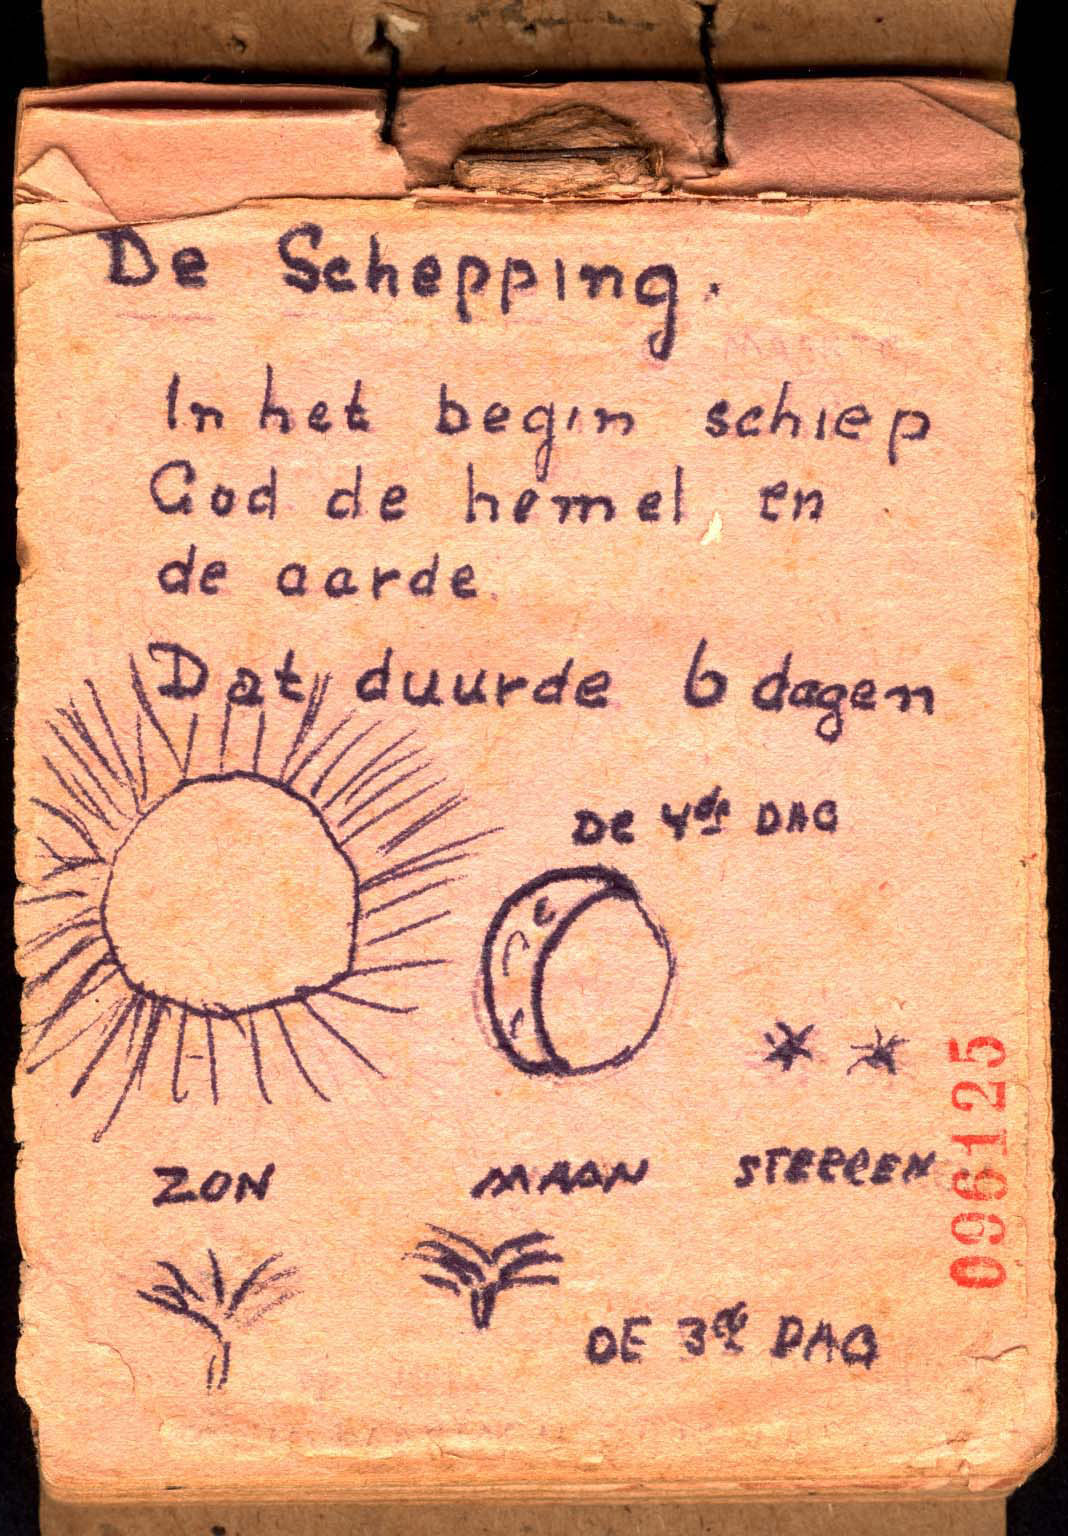 De Schepping.
In het begin schiep
God de hemel en
de aarde.
Dat duurde 6 dagen
DE 4de DAG
ZON MAAN STERREN
DE 3de DAG
096125